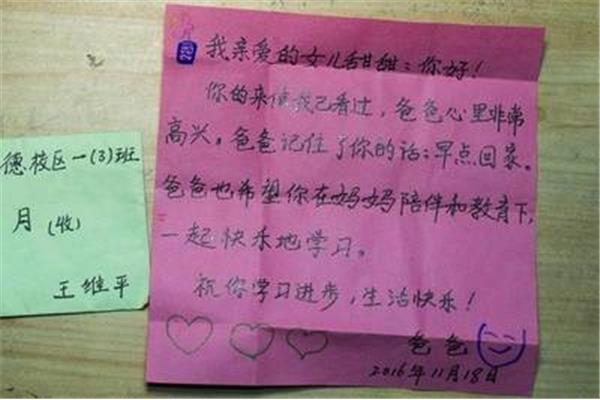 德校区一(3)班
月(收)
王维平
我亲爱的女儿甜甜：你好！
你的来信我已看过，爸爸心里非常
高兴。爸爸记住了你的话：早点回家。
爸爸也希望你在妈妈陪伴和教育下，
一起快乐地学习。
祝你学习进步，生活快乐！
爸爸
2016年11月18日